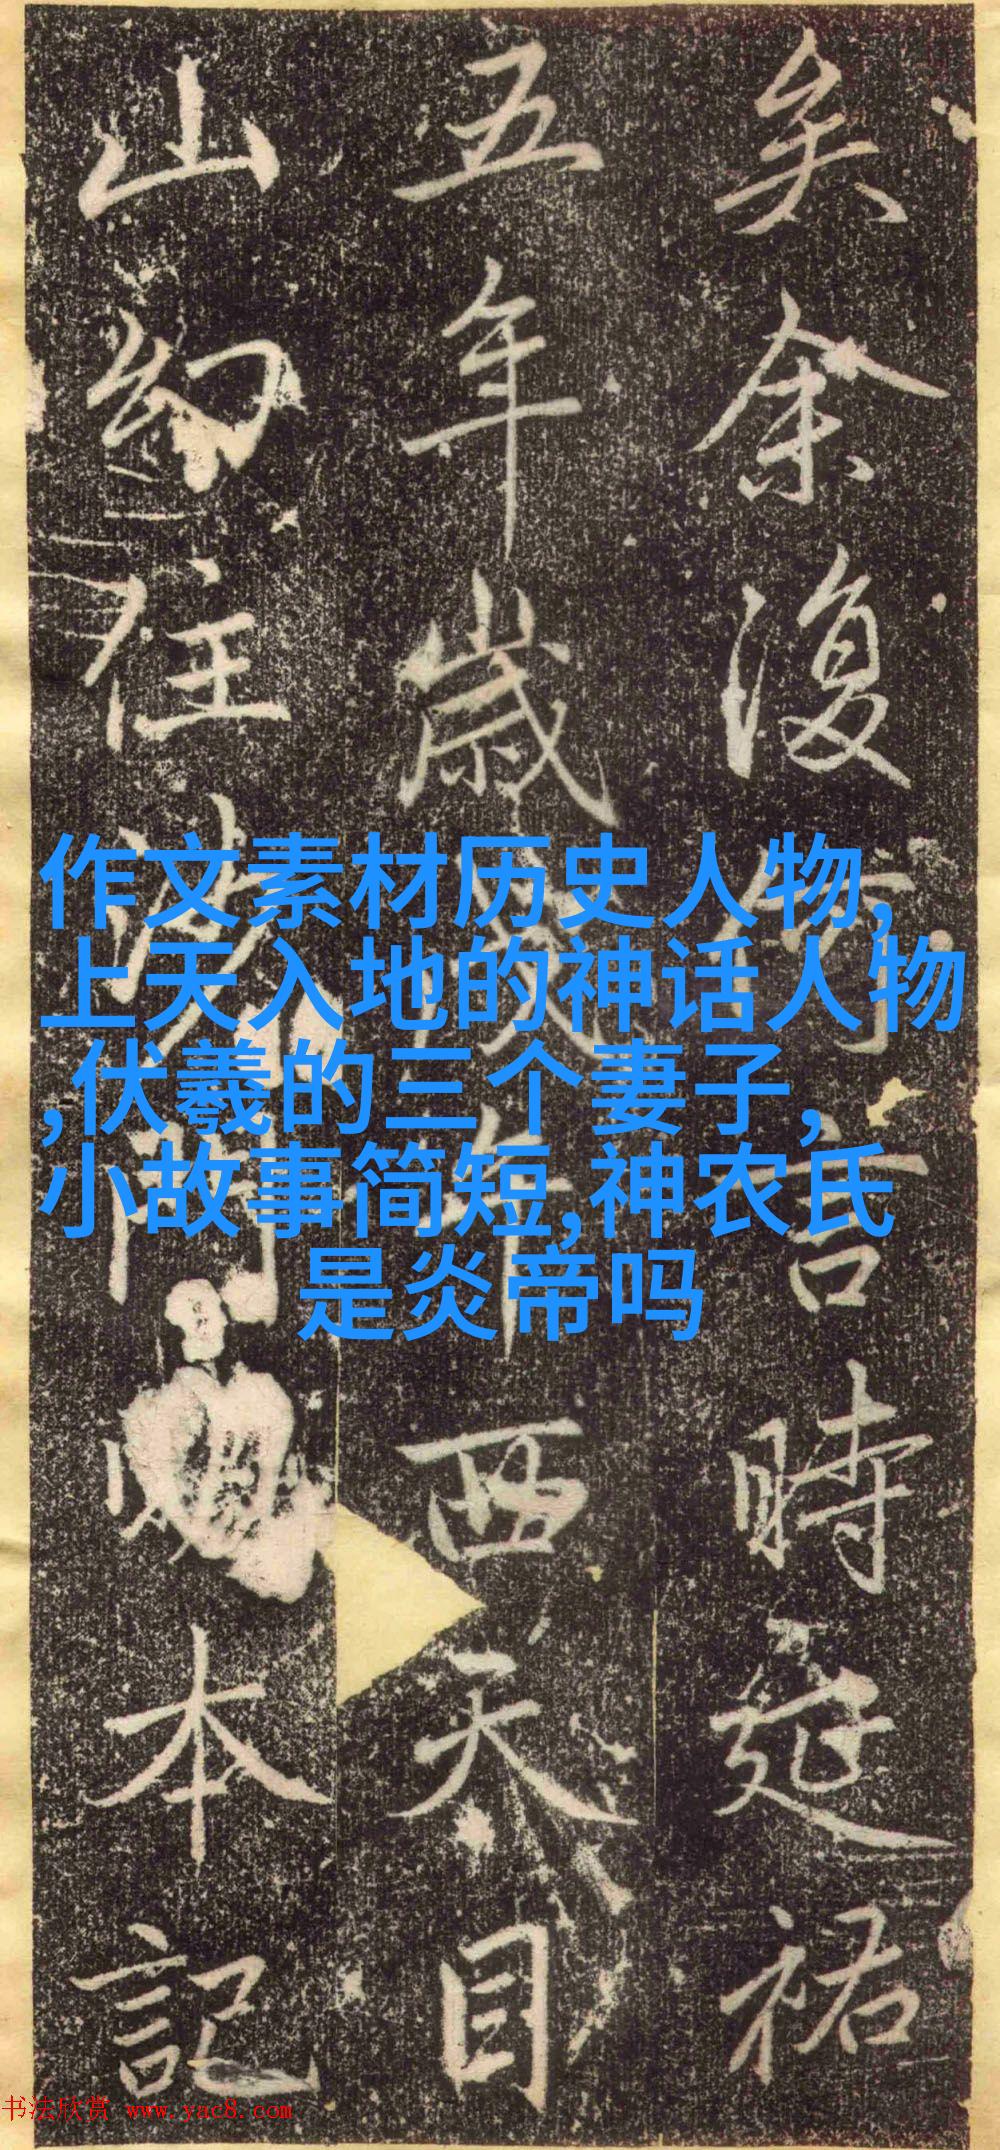 矣余復何言時延祐
五年歲戊午西天目
山幻住沙門明本記
作文素材历史人物,
上天入地的神话人物
,伏羲的三个妻子,
小故事简短,神农氏
是炎帝吗
书法欣赏 www.yac8.com